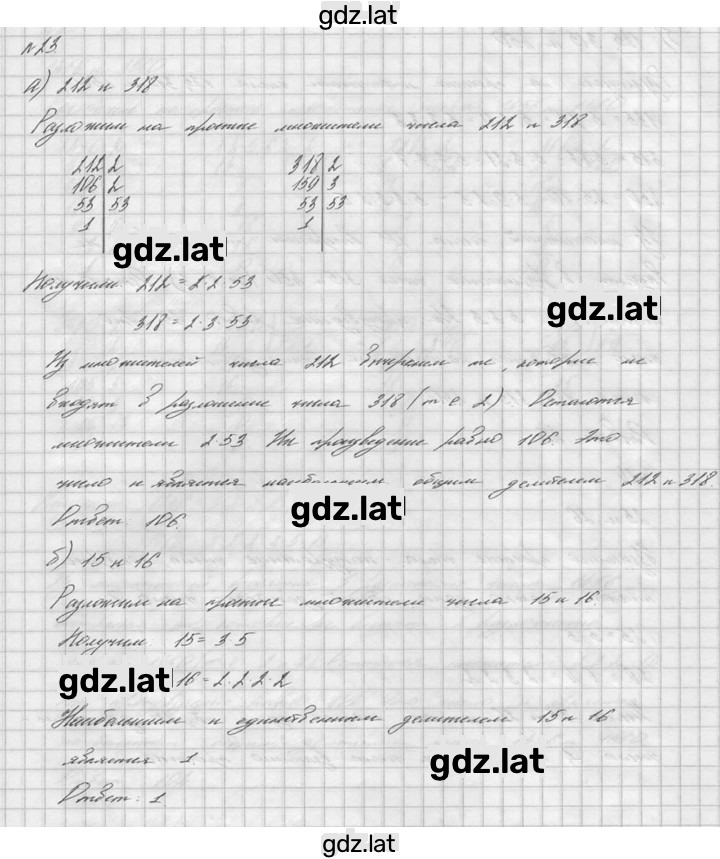 gdz.lat
№23
а) 212 и 318
Разложим на простые множители числа 212 и 318
212 2 318 2
106 2 159 3
53 53 53 53
1 1
gdz.lat
Получим: 212 = 2·2·53
gdz.lat
318 = 2·3·53
Из множителей числа 212 вычеркнем те, которые не
входят в разложение числа 318 (т е 2) Остаются
множители 2·53 Их произведение равно 106. Это
число и является наибольшим общим делителем 212 и 318.
gdz.lat
Ответ: 106.
б) 15 и 16
Разложим на простые множители числа 15 и 16.
Получим: 15 = 3·5
gdz.lat 16 = 2·2·2·2
Наибольшим и единственным делителем 15 и 16
является 1.
gdz.lat
Ответ: 1.
gdz.lat